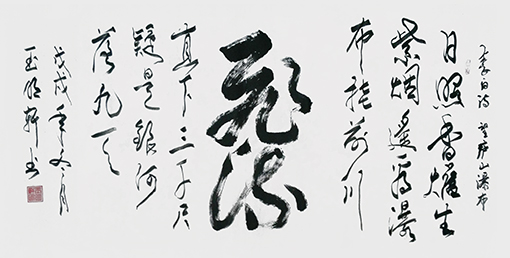 李白诗 望庐山瀑布
日照香爐生
紫烟遥看瀑
布挂前川
飞流
直下三千尺
疑是银河
落九天
戊戌年月
玉明轩书